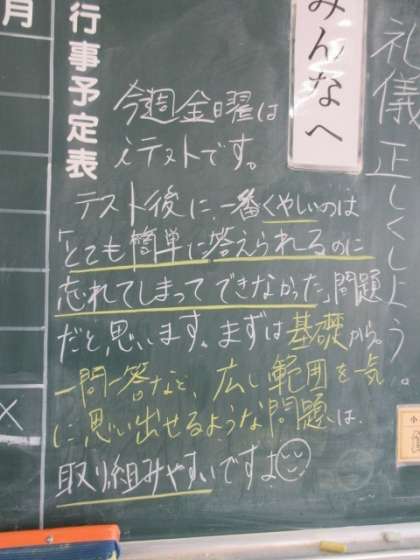 礼儀正しくしよう。
みんなへ
行事予定表
月
今週金曜は
iテストです。
テスト後に、一番くやしいのは
「とても簡単に答えられるのに
忘れてしまってできなかった」問題
だと思います。まずは基礎から。
一問一答など、広い範囲を一気
に思い出せるような問題は、
取り組みやすいですよ
×
小